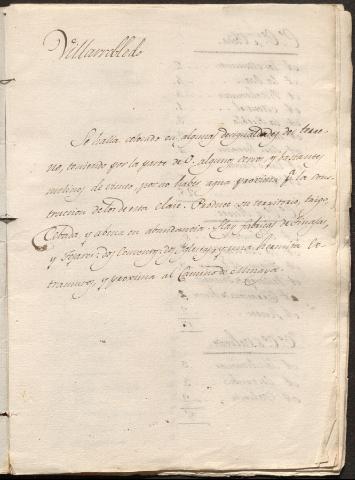 Villarrobledo
Se halla colocado en algunas desigualdades de terre-
no, teniendo por la parte de O. algunos cerros, y bastantes
molinos de viento, por no haber agua proxima pª la cons-
truccion de los de otra clase. Produce su territorio, trigo,
Cebada, y abena en abundancia. Hay fabricas de Tinajas,
y Tejares: dos Conventos: dos Iglesias y una hermita ex-
tramuros, y proxima al Camino de Minaya.